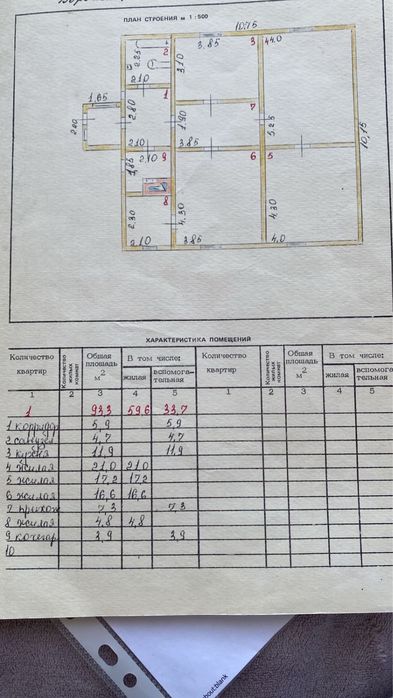 ПЛАН СТРОЕНИЯ м 1 : 500
10.75
2.25
2
3.85
3
4
4.0
3.10
2.10
1
1.65
2.00
2.80
1.90
7
5.25
10.15
2.10
3.85
2.10
9
6
5
1.85
8
2.30
4.30
4.30
2.10
3.85
4.0
ХАРАКТЕРИСТИКА ПОМЕЩЕНИЙ
Количество квартир Количество жилых комнат Общая площадь м2 В том числе: жилая вспомога-тельная Количество квартир Количество жилых комнат Общая площадь м2 В том числе: жилая вспомога-тельная
1 2 3 4 5 1 2 3 4 5
1 93,3 59,6 33,7
1 корридор 5,9 5,9
2 санузел 4,7 4,7
3 кухня 11,9 11,9
4 жилая 21,0 21,0
5 жилая 17,2 17,2
6 жилая 16,6 16,6
7 прихож 7,3 7,3
8 жилая 4,8 4,8
9 кочегар 3,9 3,9
10
about:blank